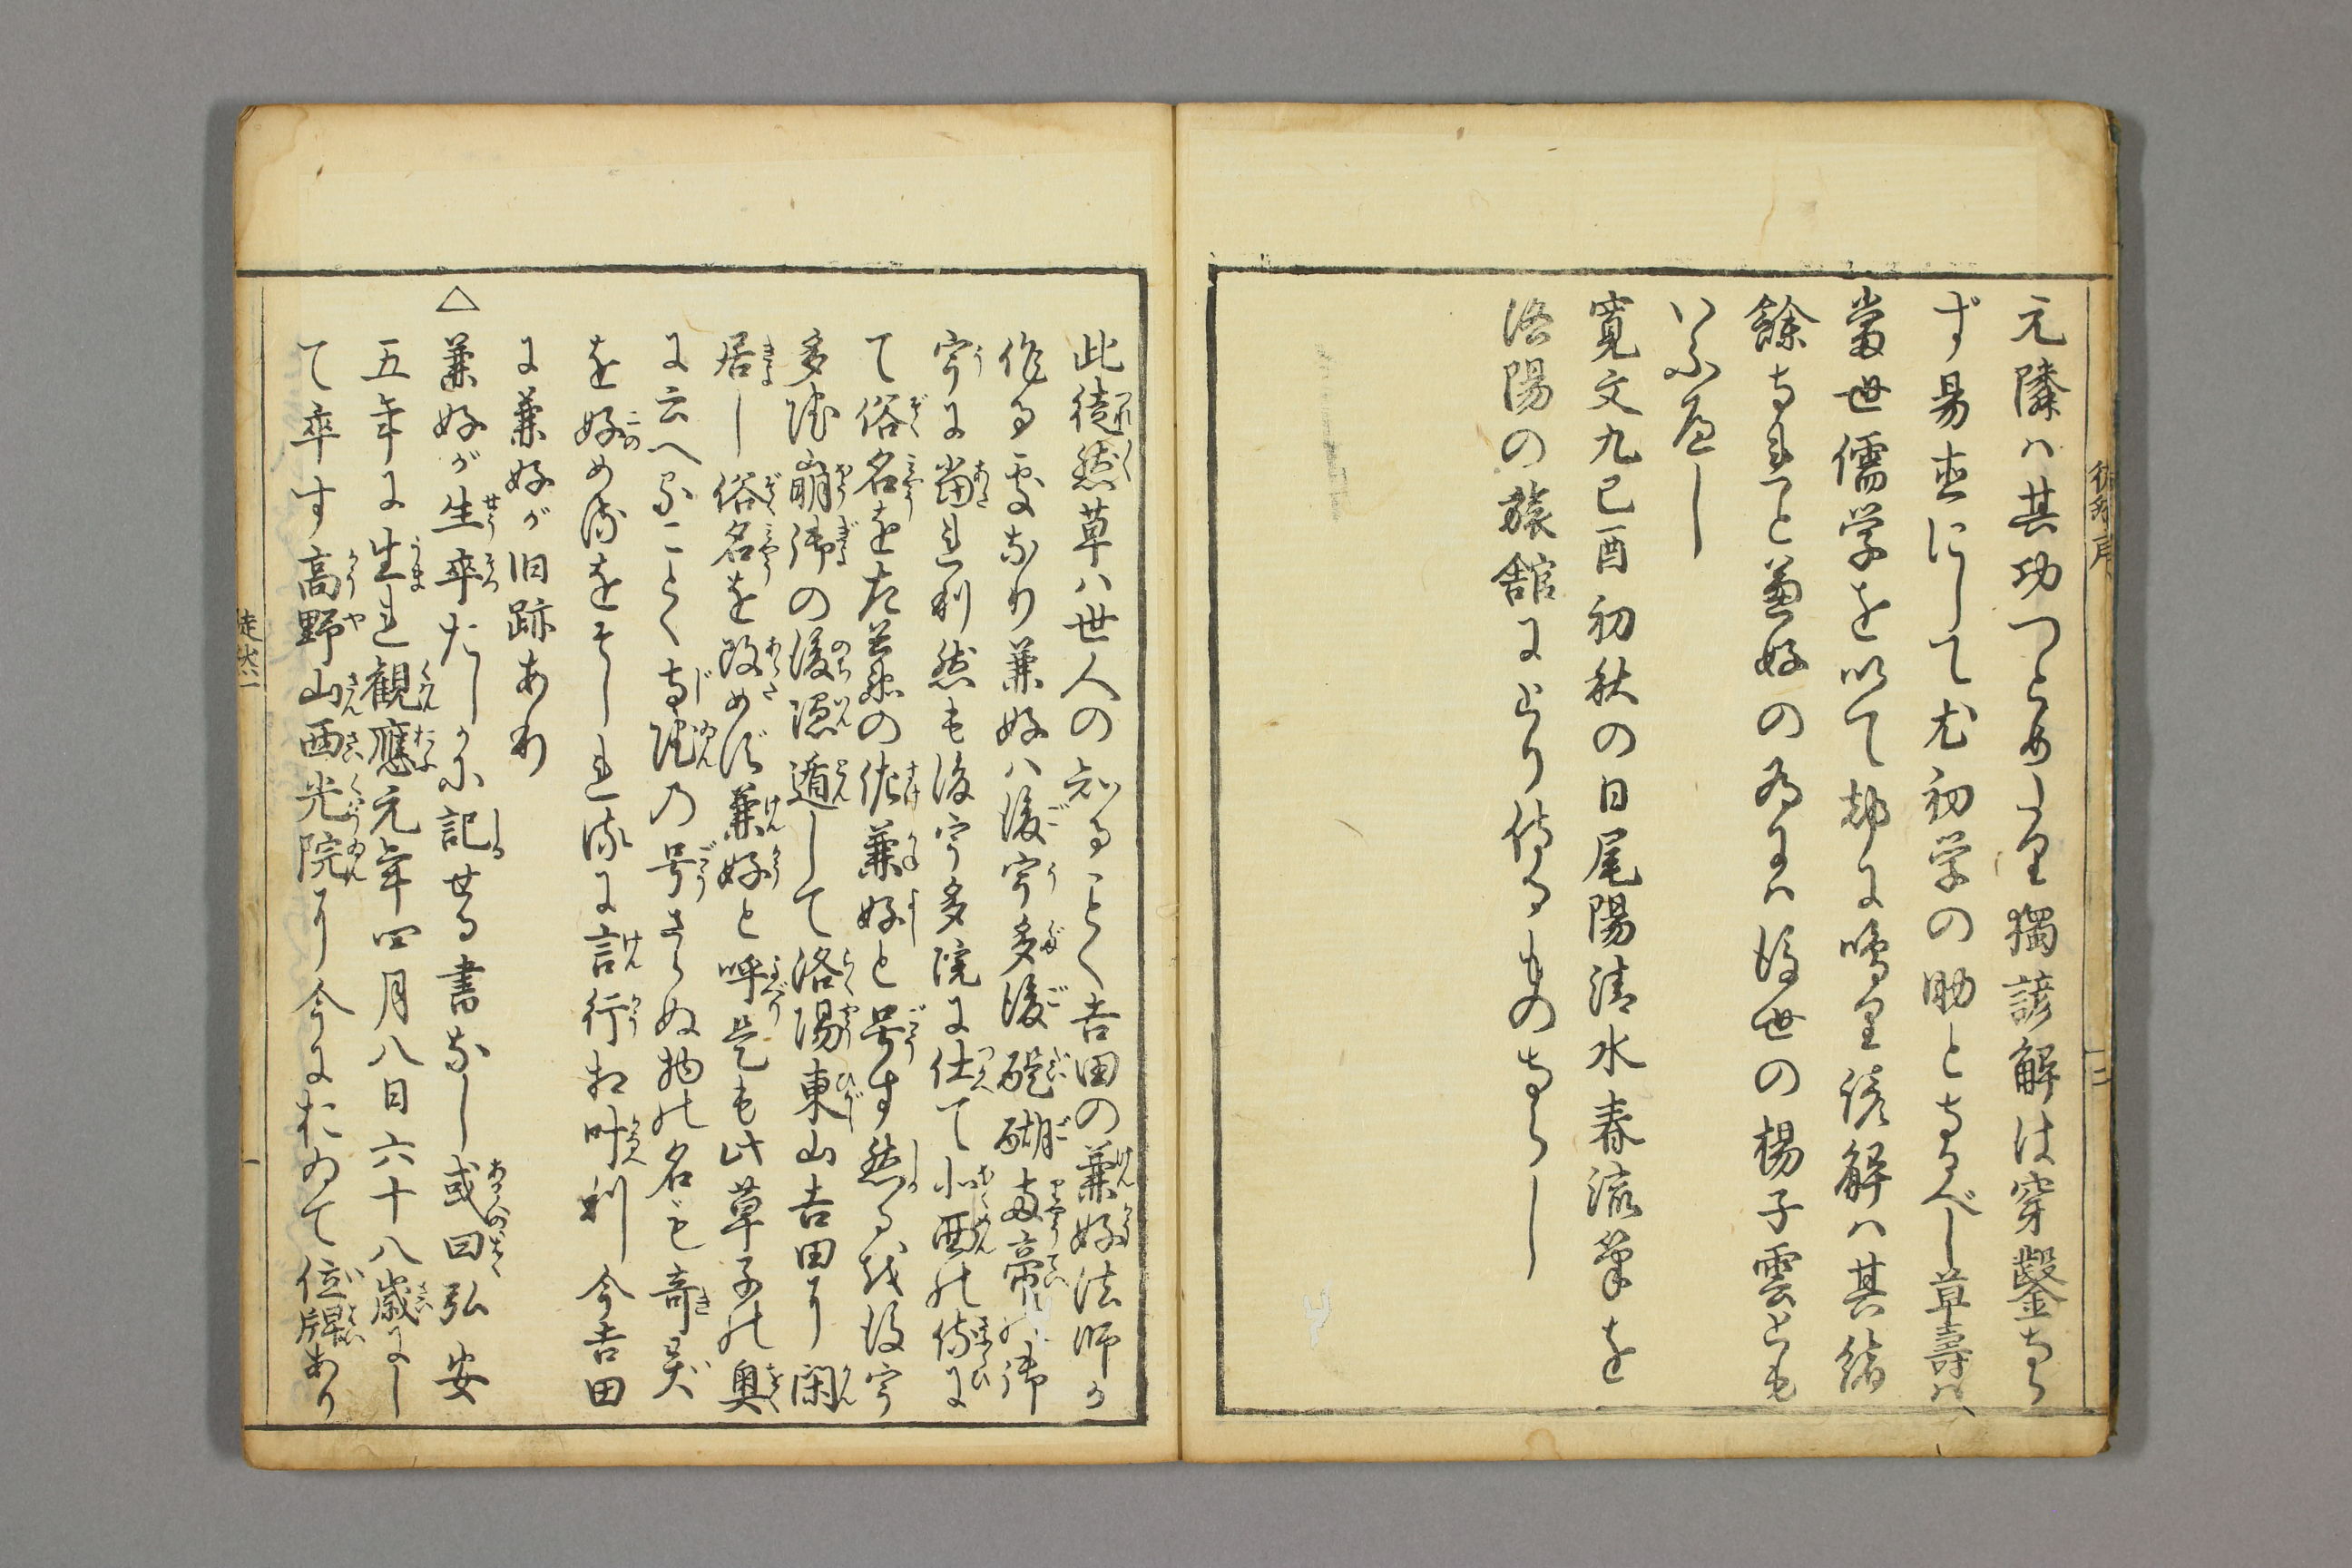 元隣ハ其功つとめたり獨諺解は穿鑿なら
ず易直にして尤初学の助となるべし草壽ハ
當世儒学を以て都に鳴り諺解ハ其緒
餘なれと兼好の為にハ後世の楊子雲とも
いふへし
寛文九己酉初秋の日尾陽清水春流筆を
洛陽の旅館にとり侍るものならし
此徒然草ハ世人の知ることく吉田の兼好法師か
作る處なり兼好ハ後宇多後醍醐両帝の御
宇に當れり然も後宇多院に仕て北面の侍に
て俗名を左兵衛の佐兼好と号す然るを後宇
多院崩御の後隠遁して洛陽東山吉田に閑
居し俗名を改めず兼好と呼是も此草子の奥
に云へることく寺院の号さらぬ物の名も奇異
を好める事をそしれる故に言行相叶へり今吉田
に兼好が旧跡あり
△兼好が生卒たしかに記せる書なし或曰弘安
五年に生れ観應元年四月八日六十八歳にし
て卒す高野山西光院に今において位牌あり
徒然序
二
徒然一
一